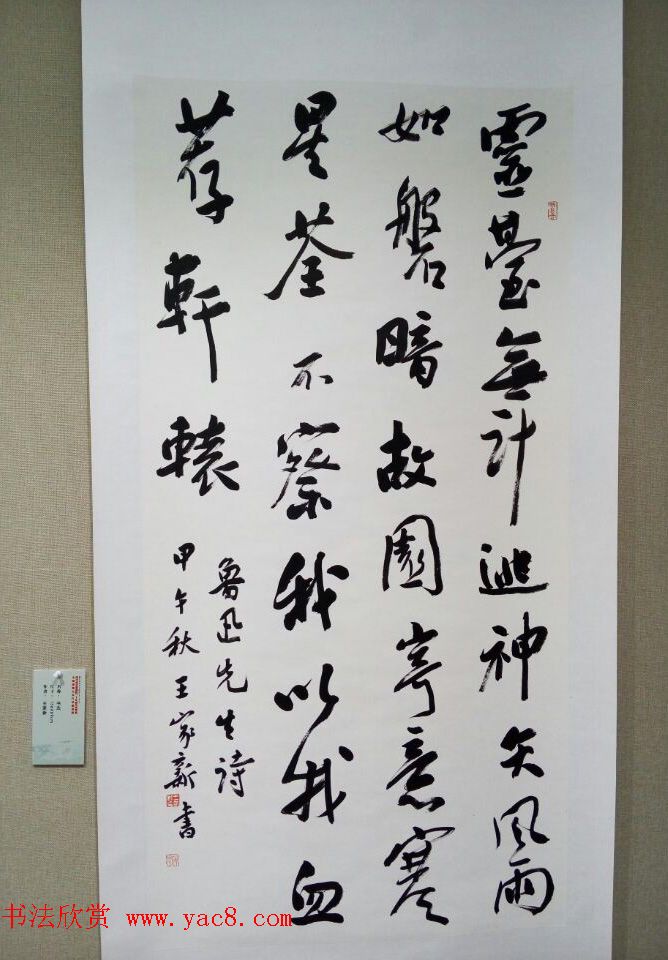 靈臺無計逃神矢風雨
如磐暗故園寄意寒
星荃不察我以我血
荐軒轅
魯迅先生詩
甲午秋王家新書
书法欣赏 www.yac8.com